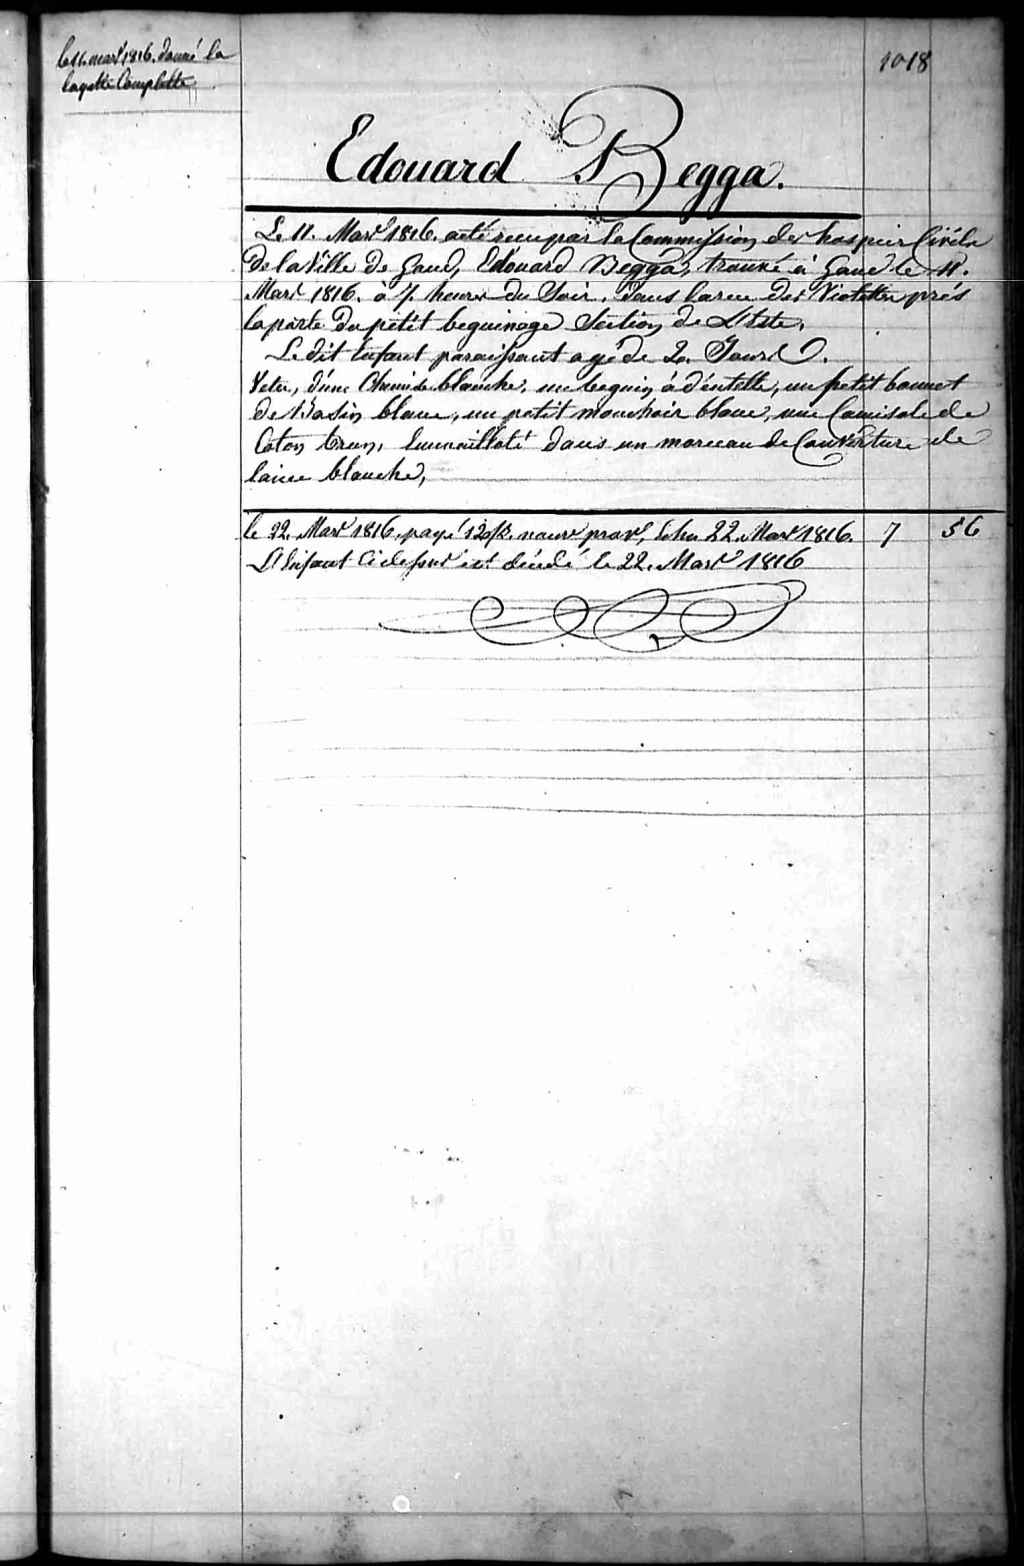 le 11. mars 1816. donné la
layette Complette
1018
Edouard Begga.
Le 11. Mars 1816. a été recu par la Commission des hospices Civils
de la Ville de Gand, Edouard Begga, trouvé à Gand le 11.
Mars 1816. à 7. heures du Soir. Dans la rue des Violettes près
la porte du petit beguinage Section de L'Est.
Le dit Enfant paraissant agé de 2. Jours.
Vetu, d'une Chemise blanche, un beguin à déntelle, un petit bonnet
de Basin blanc, un petit mouchoir blanc, une Camisole de
Coton brun, Emmailloté dans un morceau de Couverture de
laine blanche,
le 22. Mars 1816. payé 12 22. Mars 1816. 7 56
L'Enfant Ci dessus est décédé le 22. Mars 1816